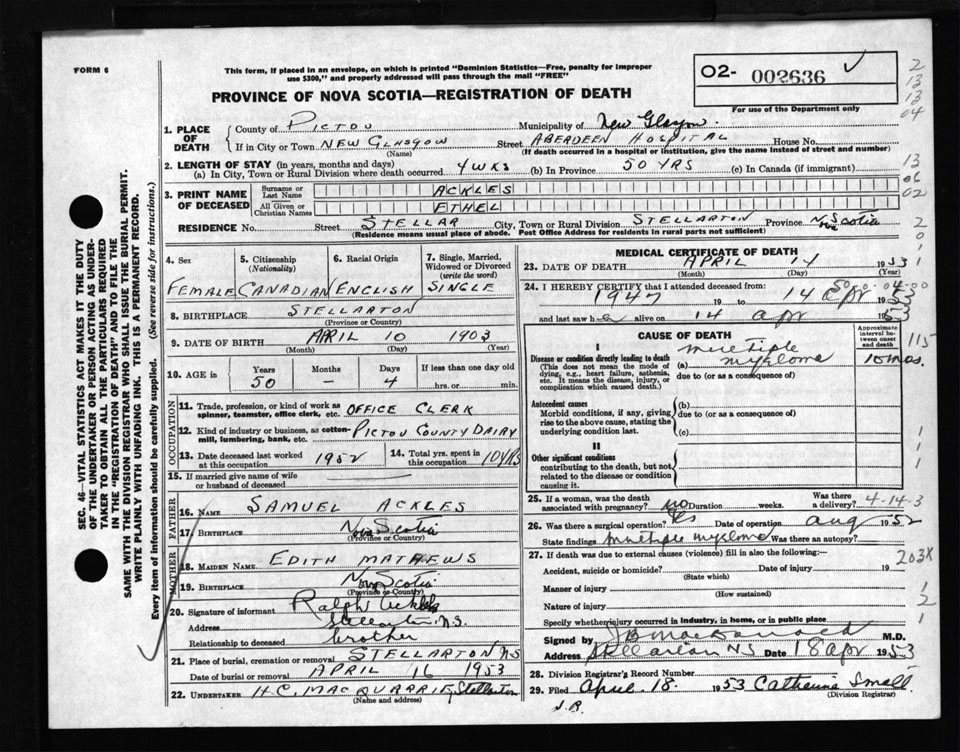 FORM 6
This form, if placed in an envelope, on which is printed "Dominion Statistics—Free, penalty for improper
use $300," and properly addressed will pass through the mail "FREE"
PROVINCE OF NOVA SCOTIA—REGISTRATION OF DEATH
O2- 002636
For use of the Department only
2
13
13
04
13
06
02
2
0
1
1
SEC. 46—VITAL STATISTICS ACT MAKES IT THE DUTY
OF THE UNDERTAKER OR PERSON ACTING AS UNDER-
TAKER TO OBTAIN ALL THE PARTICULARS REQUIRED
IN THE "REGISTRATION OF DEATH" AND TO FILE THE
SAME WITH THE DIVISION REGISTRAR WHO SHALL ISSUE THE BURIAL PERMIT.
WRITE PLAINLY WITH UNFADING INK. THIS IS A PERMANENT RECORD.
Every item of information should be carefully supplied. (See reverse side for instructions.)
1. PLACE OF DEATH
County of PICTOU Municipality of New Glasgow.
If in City or Town NEW GLASGOW Street ABERDEEN HOSPITAL House No.
(Name) (If death occurred in a hospital or institution, give the name instead of street and number)
2. LENGTH OF STAY (in years, months and days)
(a) In City, Town or Rural Division where death occurred 4 WKS (b) In Province 50 YRS (c) In Canada (if immigrant)
3. PRINT NAME OF DECEASED
Surname or Last Name ACKLES
All Given or Christian Names ETHEL
RESIDENCE No. Street STELLAR City, Town or Rural Division STELLARTON Province Nova Scotia
(Residence means usual place of abode. Post Office Address for residents in rural parts not sufficient)
4. Sex
FEMALE
5. Citizenship
(Nationality)
CANADIAN
6. Racial Origin
ENGLISH
7. Single, Married,
Widowed or Divorced
(write the word)
SINGLE
8. BIRTHPLACE STELLARTON
(Province or Country)
9. DATE OF BIRTH APRIL 10 1903
(Month) (Day) (Year)
10. AGE in
Years 50
Months —
Days 4
If less than one day old
hrs. or min.
OCCUPATION
11. Trade, profession, or kind of work as
spinner, teamster, office clerk, etc. OFFICE CLERK
12. Kind of industry or business, as cotton-
mill, lumbering, bank, etc. PICTOU COUNTY DAIRY
13. Date deceased last worked
at this occupation 1952
14. Total yrs. spent in
this occupation 10 YRS
15. If married give name of wife
or husband of deceased
FATHER
16. Name SAMUEL ACKLES
17. Birthplace Nova Scotia
(Province or Country)
MOTHER
18. Maiden Name EDITH MATHEWS
19. Birthplace Nova Scotia
(Province or Country)
20. Signature of informant Ralph Ackles
Address Stellarton N.S.
Relationship to deceased brother
21. Place of burial, cremation or removal STELLARTON NS
Date of burial or removal APRIL 16 1953
22. UNDERTAKER H.C. MACQUARRIE, Stellarton
(Name and address)
MEDICAL CERTIFICATE OF DEATH
23. DATE OF DEATH APRIL 14 1953
(Month) (Day) (Year)
24. I HEREBY CERTIFY that I attended deceased from:
50-00-04-00
1947 to 14 apr 1953
and last saw her alive on 14 apr 1953
CAUSE OF DEATH
Approximate interval between onset and death
115
I
Disease or condition directly leading to death
(This does not mean the mode of
dying, e.g., heart failure, asthenia,
etc. It means the disease, injury, or
complication which caused death.)
(a) multiple myeloma 10 mos.
due to (or as a consequence of)
Antecedent causes
Morbid conditions, if any, giving
rise to the above cause, stating the
underlying condition last.
(b)
due to (or as a consequence of)
(c)
II
Other significant conditions
contributing to the death, but not
related to the disease or condition
causing it.
1
1
1
25. If a woman, was the death
associated with pregnancy? NO Duration weeks. Was there a delivery?
4-14-3
26. Was there a surgical operation? Yes Date of operation aug 1952
State findings multiple myeloma Was there an autopsy?
27. If death was due to external causes (violence) fill in also the following:—
203X
Accident, suicide or homicide? Date of injury 19
(State which)
Manner of injury
(How sustained)
Nature of injury
Specify whether injury occurred in industry, in home, or in public place
1
2
1
Signed by M.D.
Address Stellarton NS Date 18 apr 1953
28. Division Registrar's Record Number
29. Filed April 18. 1953 Catherine Small
(Division Registrar)
J.R.